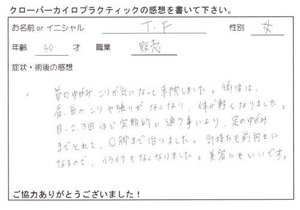 クローバーカイロプラクティックの感想を書いて下さい。
お名前orイニシャル T.F 性別 女
年齢 30才 職業 販売
症状・術後の感想
首のゆがみ、こりが気になって来院しました。術後は、
肩・首のこりや張りがなくなり、体が軽くなりました。
月、2、3回ほど定期的に通う事により、足のゆがみ
までとれて、O脚まで治りました。気持ちも前向きに
なるので、イライラもなくなりました。美容にもいいです。
ご協力ありがとうございました！